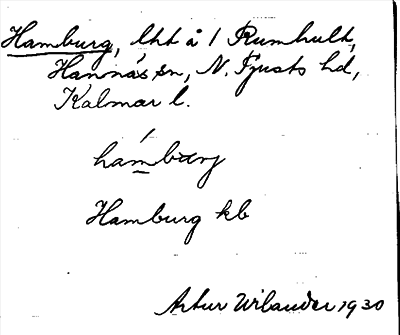 Hamburg, lht å 1 Rumhult,
Hannäs sn, N. Tjusts hd,
Kalmar l.
hambærj
Hamburg kb
Artur Wilander 1930